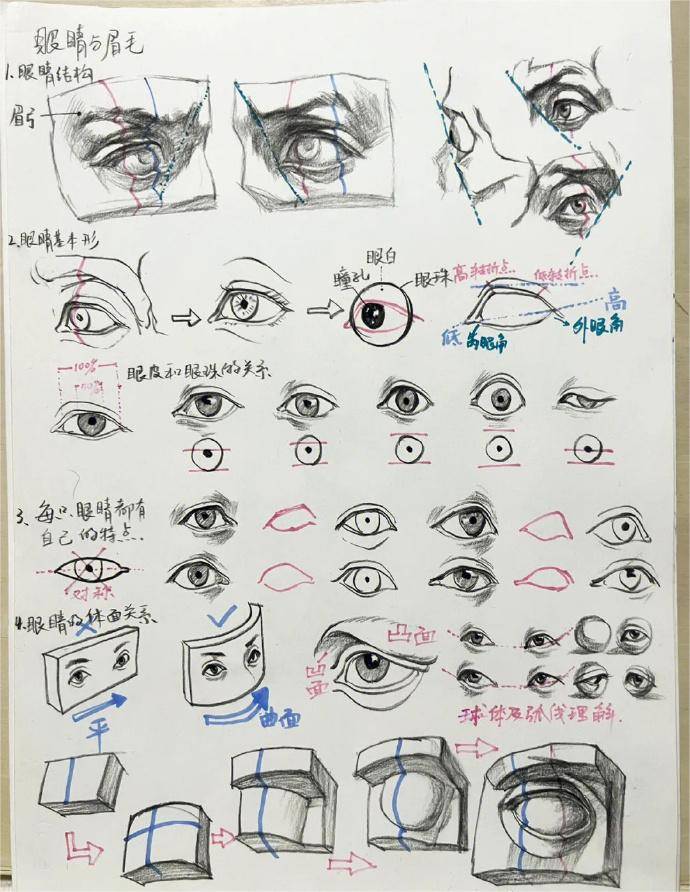 眼睛与眉毛
1.眼睛结构
眉弓
2.眼睛基本形
眼白
瞳孔
眼珠
高转折点..
低转折点..
高
低
内眼角
外眼角
100%
眼皮和眼珠的关系
3、每只眼睛都有
自己的特点.
对称
4.眼睛的体面关系
平
曲面
凹面
凸面
球体及弧线理解.